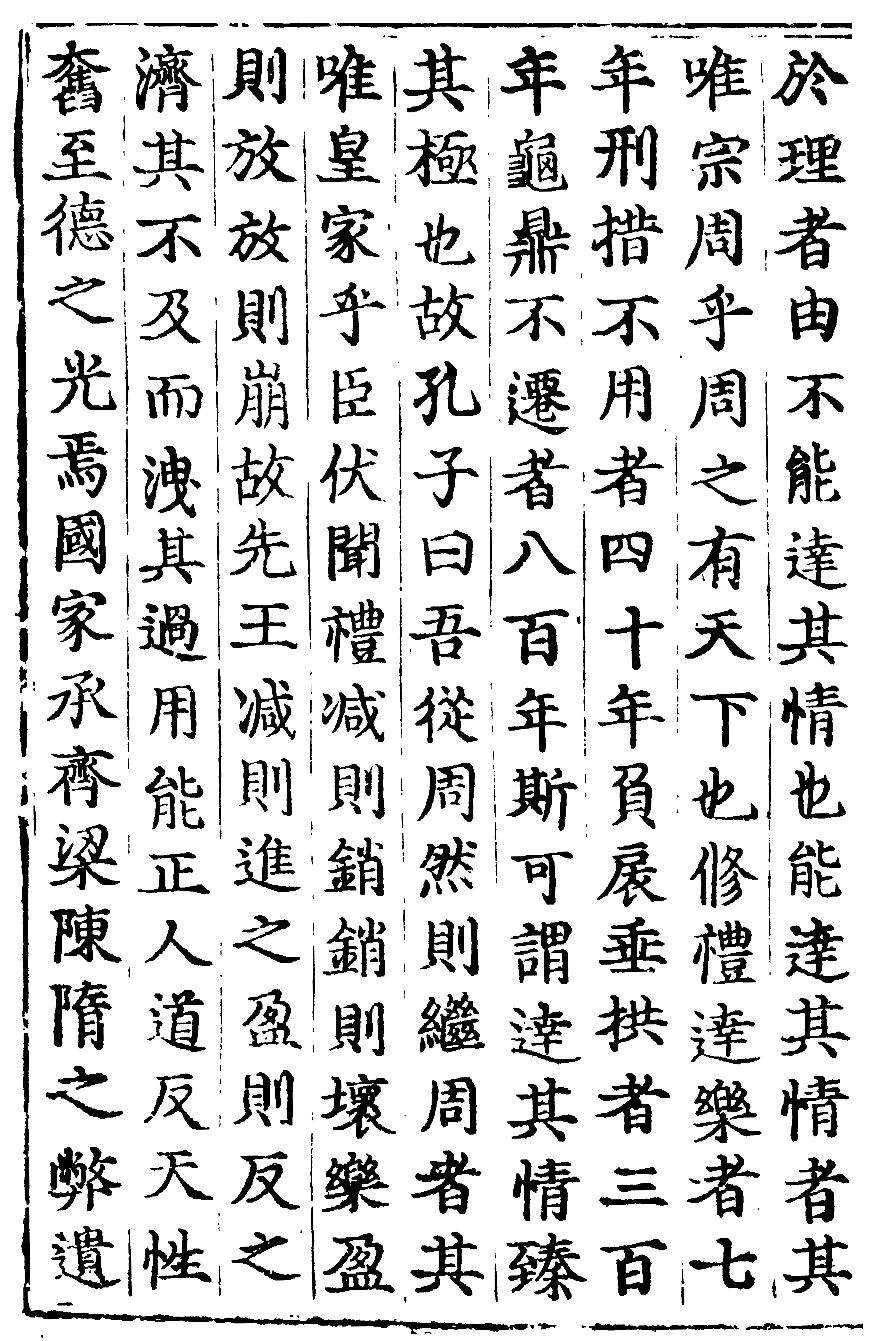 於理者由不能達其情也能達其情者其
唯宗周乎周之有天下也修禮達樂者七
年刑措不用者四十年負扆垂拱者三百
年龜鼎不遷者八百年斯可謂達其情臻
其極也故孔子曰吾從周然則繼周者其
唯皇家乎臣伏聞禮減則銷銷則壞樂盈
則放放則崩故先王減則進之盈則反之
濟其不及而洩其過用能正人道反天性
奮至德之光焉國家承齊梁陳隋之弊遺